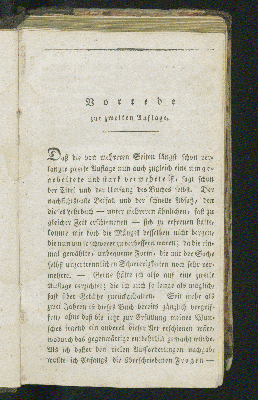 Vorrede
zur zweiten Auflage.
Daß die von mehreren Seiten längst schon ver-
langte zweite Auflage nun auch zugleich eine umge-
arbeitete und stark vermehrte ist, sagt schon
der Titel und der Umfang des Buches selbst. Der
nachsichtsvolle Beifall und der schnelle Absatz, den
dieses Lehrbuch — unter mehreren ähnlichen, fast zu
gleicher Zeit erschienenen — sich zu erfreuen hatte,
konnte mir doch die Mängel desselben nicht bergen,
die nun um so schwerer zu verbessern waren, da die ein-
mal gewählte, unbequeme Form, die mit der Sache
selbst unzertrennlichen Schwierigkeiten noch sehr ver-
mehrte. — Gerne hätte ich also auf eine zweite
Auflage verzichtet, die ich auch so lange als möglich,
fast über Gebühr zurückgehalten. Seit mehr als
zwei Jahren ist dieses Buch bereits gänzlich vergrif-
fen, ohne daß bis jetzt zur Erfüllung meines Wun-
sches irgend ein anderes dieser Art erschienen wäre,
wodurch das gegenwärtige entbehrlich gemacht würde.
Als ich daher den vielen Aufforderungen nachgab,
wollte ich Anfangs die überschriebenen Fragen —